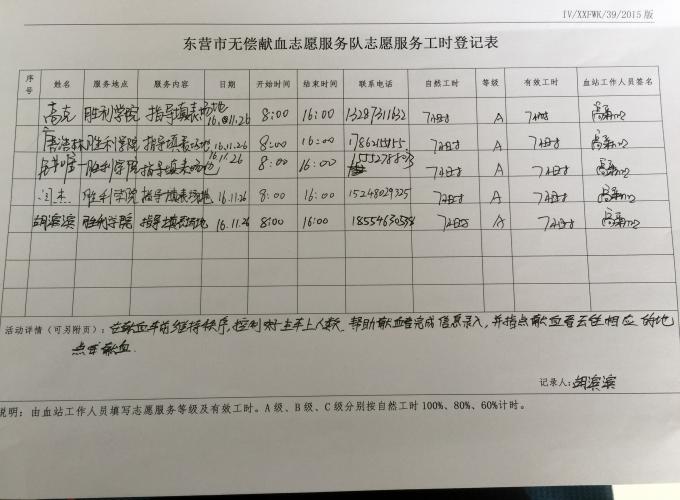 IV/XXFWK/39/2015 版
东营市无偿献血志愿服务队志愿服务工时登记表
序号 姓名 服务地点 服务内容 日期 开始时间 结束时间 联系电话 自然工时 等级 有效工时 血站工作人员签名
高克 胜利学院 指导填表场地 16.11.26 8:00 16:00 13287311632 7小时 A 7小时
胜利学院 指导填表场地 16.11.26 8:00 16:00 7小时 A 7小时
胜利学院 指导填表场地 16.11.26 8:00 16:00 7小时 A 7小时
闫杰 胜利学院 指导填表场地 16.11.26 8:00 16:00 15248029325 7小时 A 7小时
胡滨滨 胜利学院 指导填表场地 16.11.26 8:00 16:00 7小时 A 7小时
活动详情(可另附页): 在献血车前维持秩序,控制好上车上人数,帮助献血者完成信息录入,并指点献血者去往相应的地
点献血.
记录人: 胡滨滨
说明: 由血站工作人员填写志愿服务等级及有效工时。A级、B级、C级分别按自然工时 100%、80%、60%计时。